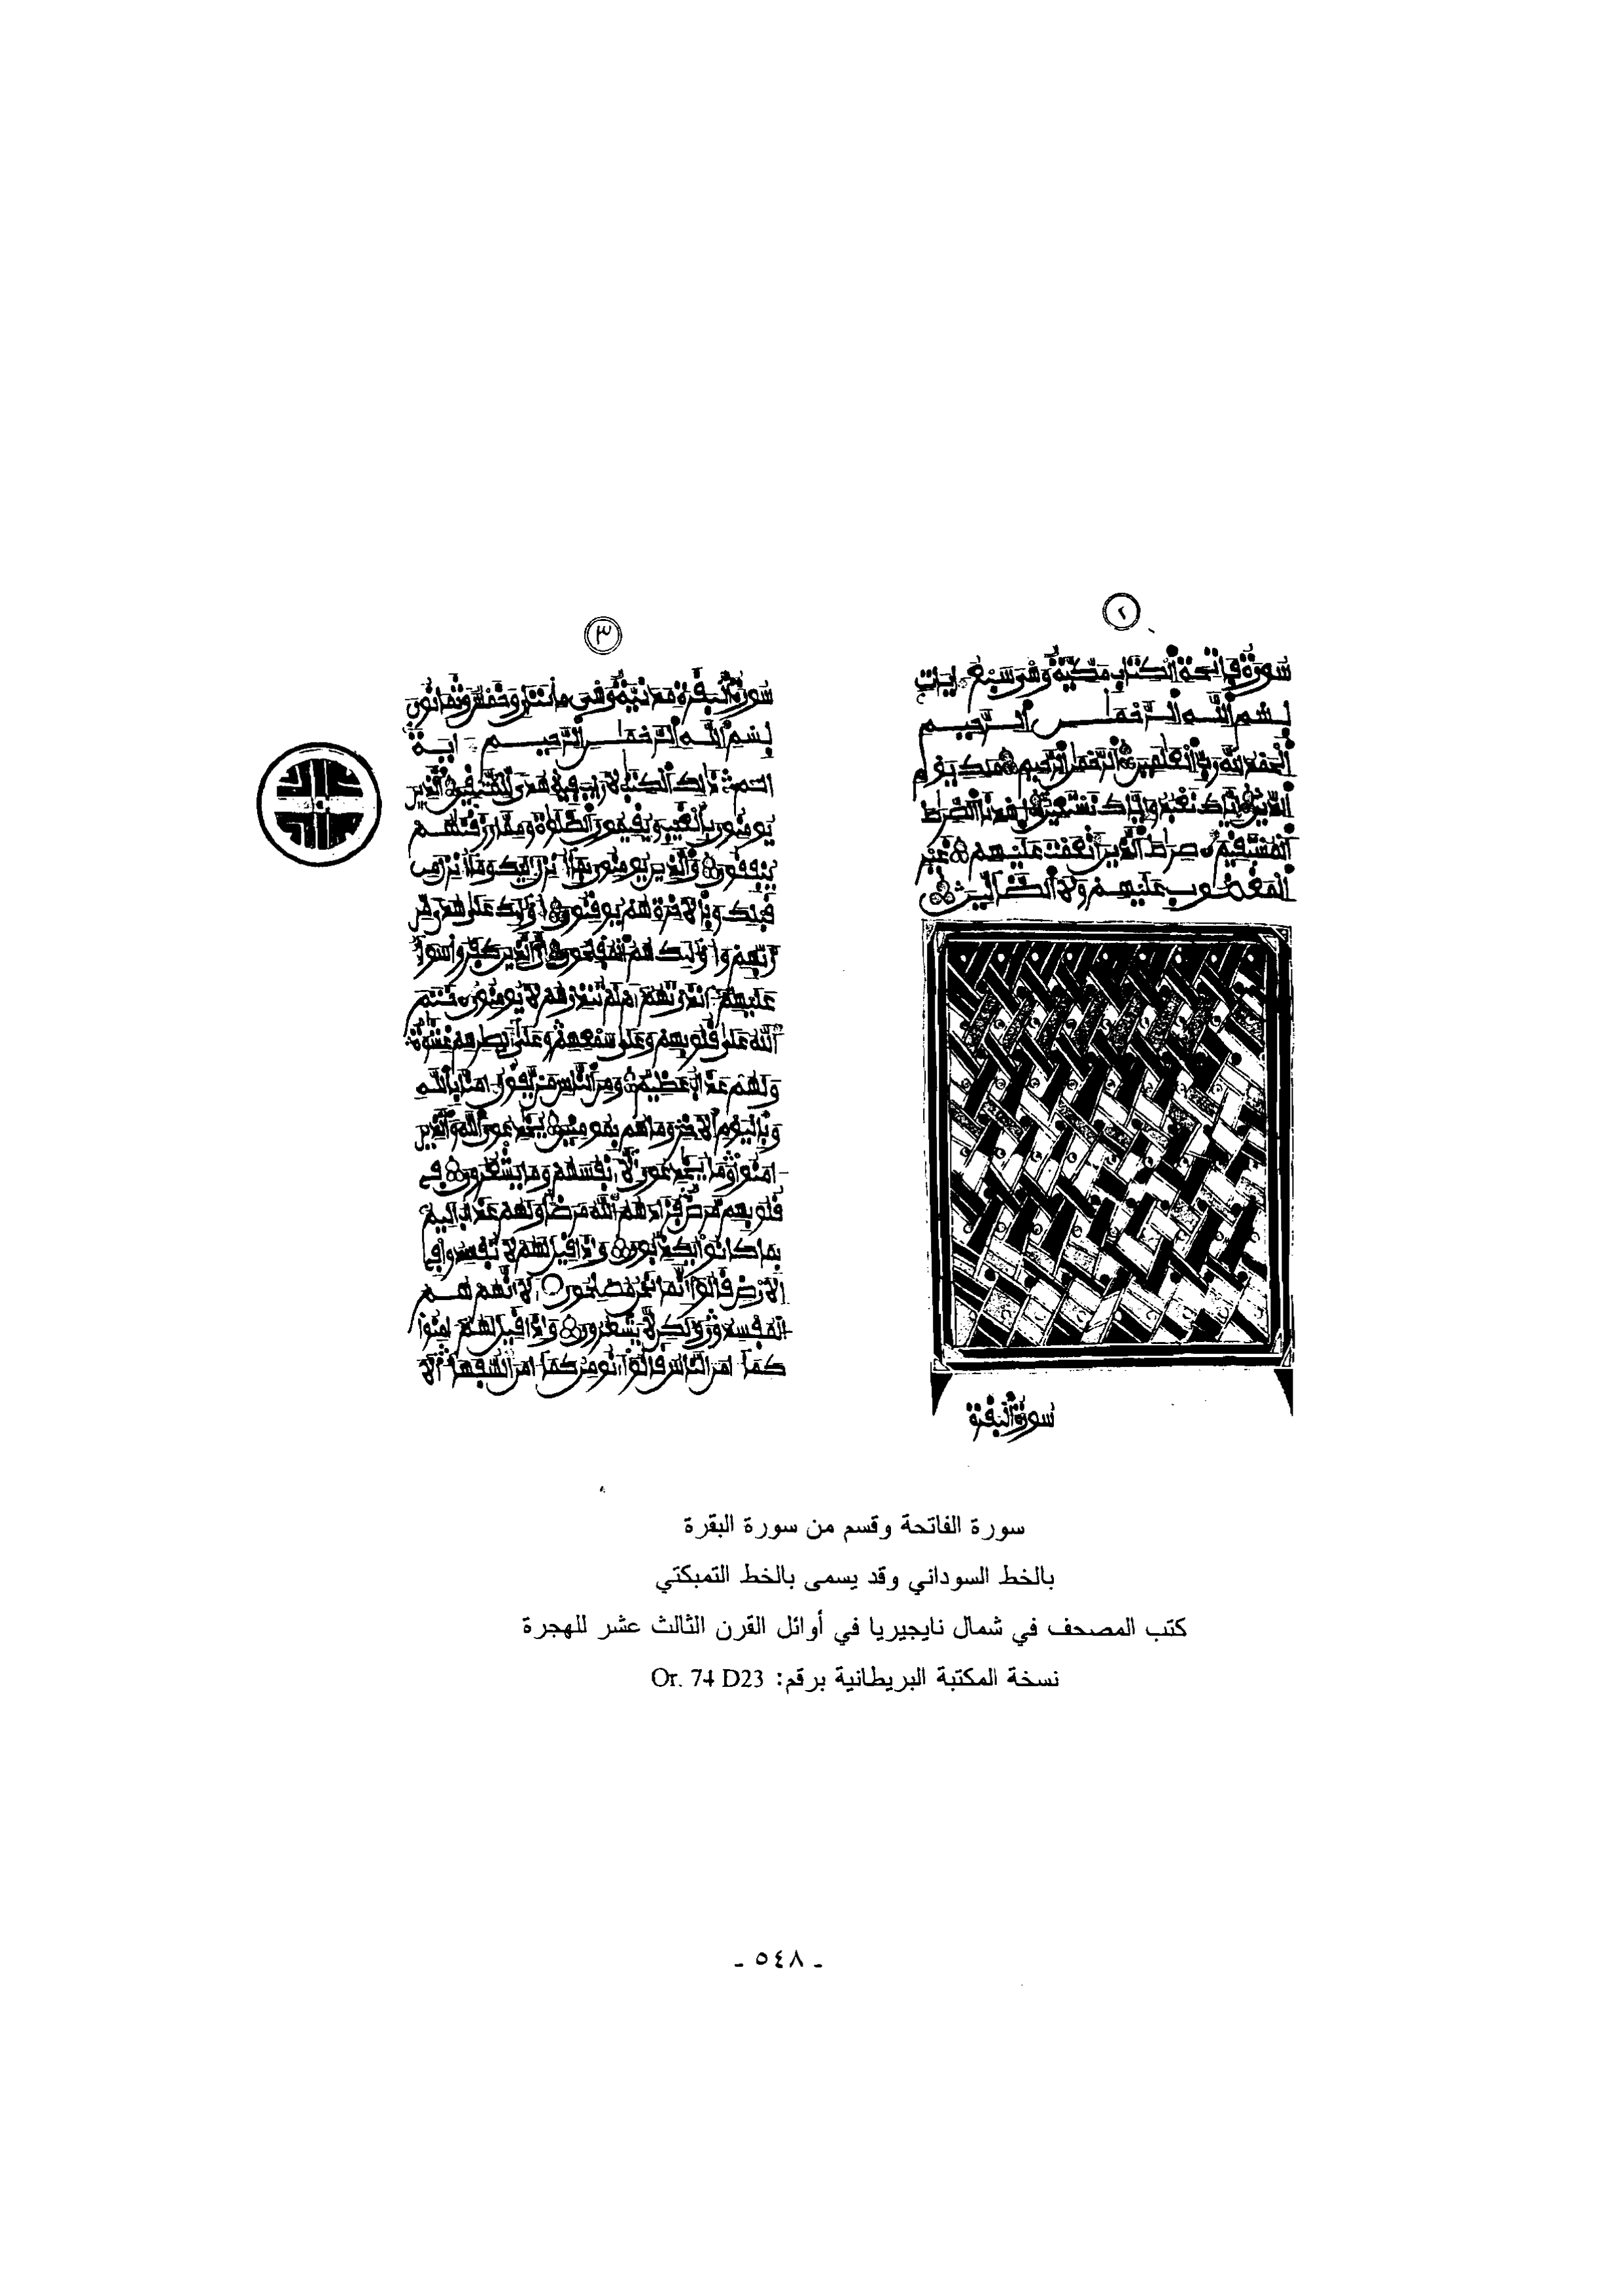 ٢
سورة فاتحة الكتاب مكية وهي سبع ءايات
بسم الله الرحمن الرحيم
الحمد لله رب العلمين الرحمن الرحيم ملك يوم
الدين إياك نعبد وإياك نستعين اهدنا الصرط
المستقيم صرط الذين أنعمت عليهم غير
المغضوب عليهم ولا الضالين
سورة البقرة
٣
سورة البقرة مدنية وهي مائتان وخمس وثمانون
بسم الله الرحمن الرحيم ءاية
الم ذلك الكتب لا ريب فيه هدى للمتقين الذين
يومنون بالغيب ويقيمون الصلوة ومما رزقنهم
ينفقون والذين يومنون بما أنزل إليك وما أنزل من
قبلك وبالاخرة هم يوقنون أوليك على هدى من
ربهم وأوليك هم المفلحون إن الذين كفروا سواء
عليهم ءانذرتهم أم لم تنذرهم لا يومنون ختم
الله على قلوبهم وعلى سمعهم وعلى أبصرهم غشوة
ولهم عذاب عظيم ومن الناس من يقول ءامنا بالله
وباليوم الاخر وما هم بمومنين يخدعون الله والذين
ءامنوا وما يخدعون إلا أنفسهم وما يشعرون في
قلوبهم مرض فزادهم الله مرضا ولهم عذاب أليم
بما كانوا يكذبون وإذا قيل لهم لا تفسدوا في
الارض قالوا إنما نحن مصلحون ألا إنهم هم
المفسدون ولكن لا يشعرون وإذا قيل لهم ءامنوا
كما ءامن الناس قالوا أنومن كما ءامن السفهاء ألا
سورة الفاتحة وقسم من سورة البقرة
بالخط السوداني وقد يسمى بالخط التمبكتي
كتب المصحف في شمال نايجيريا في أوائل القرن الثالث عشر للهجرة
نسخة المكتبة البريطانية برقم: Or. 74 D23
- ٥٤٨ -